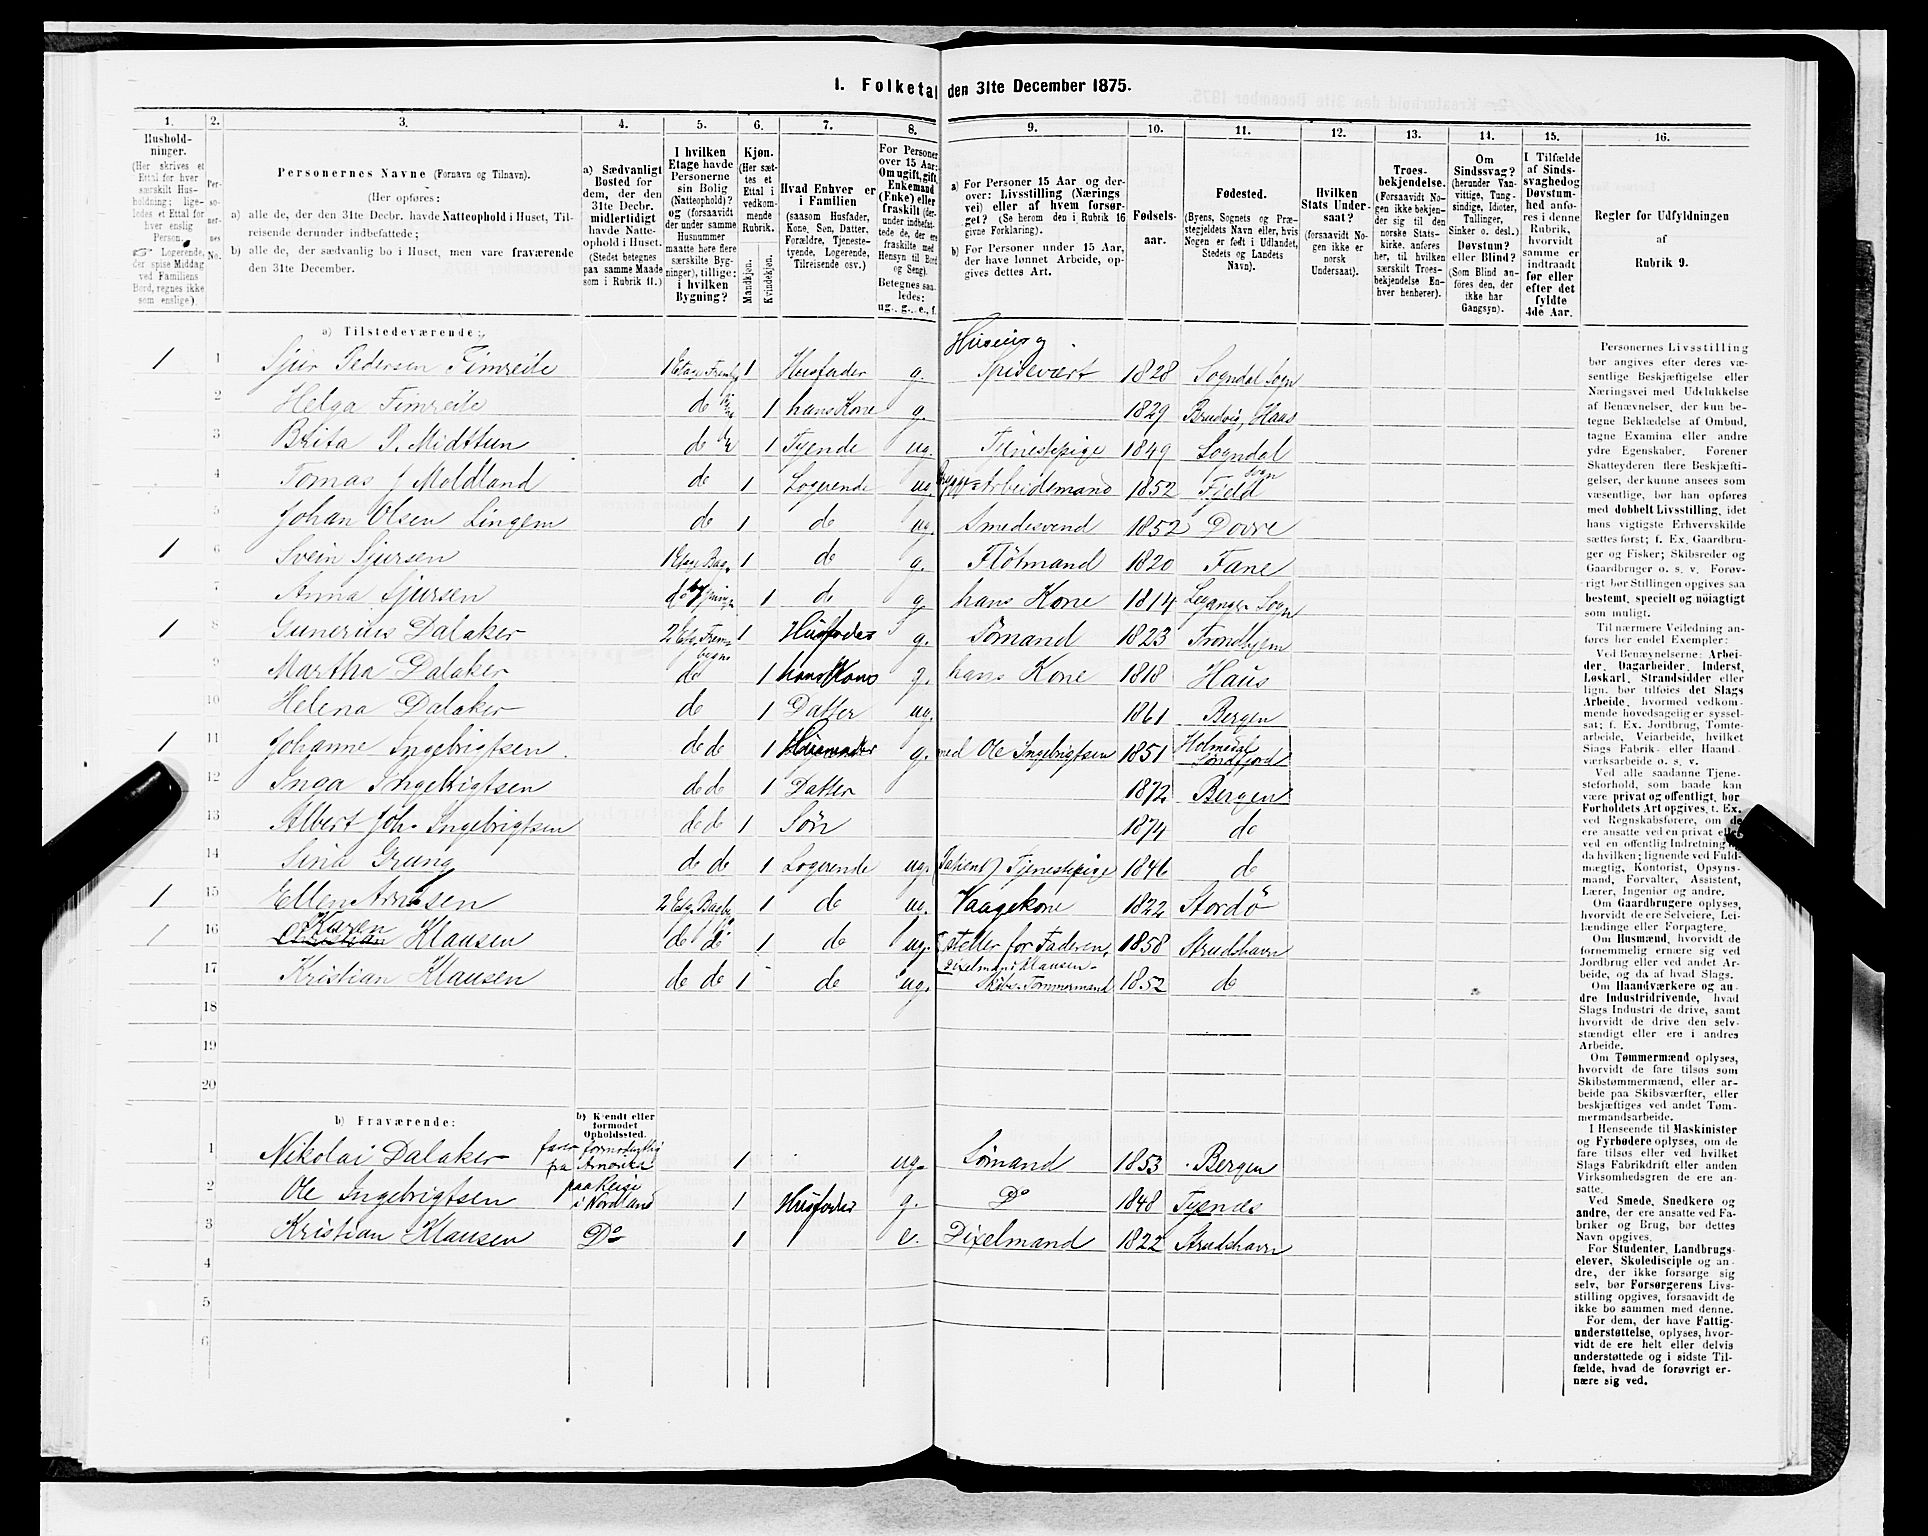 1. Folketal den 31te December 1875.
1. 2. 3. 4. 5. 6. 7. 8. 9. 10. 11. 12. 13. 14. 15. 16.
Husholdninger.
(Her skrives et
Ettal for hver
særskilt Hus-
holdning; lige-
ledes et Ettal for
hver enslig
Person.
☞ Logerende,
der spise Middag
ved Familiens
Bord, regnes ikke
som enslige).
Personernes No.
Personernes Navne (Fornavn og Tilnavn).
(Her opføres:
a) alle de, der den 31te Decbr. havde Natteophold i Huset, Til-
reisende derunder indbefattede;
b) alle de, der sædvanlig bo i Huset, men vare fraværende
den 31te December.
a) Sædvanligt
Bosted for
dem, der den
31te Decbr.
midlertidigt
havde Natte-
ophold i Huset.
(Stedet betegnes
paa samme Maade
som i Rubrik 11.)
I hvilken
Etage havde
Personerne
sin Bolig
(Natteophold)?
og (forsaavidt
der under samme
Husnummer
maatte here flere
særskilte Byg-
ninger), tillige:
i hvilken
Bygning?
Kjøn.
(Her sæt-
tes et
Ettal i
vedkom-
mende
Rubrik.
Mandkjøn.
Kvindekjøn.
Hvad Enhver er
i Familien
(saasom Husfader,
Kone, Søn, Datter,
Forældre, Tjeneste-
tyende, Logerende,
Tilreisende osv.)
For Personer
over 15 Aar:
Om ugift, gift,
Enkemand
(Enke) eller
fraskilt (der-
under indbefat-
tede de, der ere
fraskilte med
Hensyn til Bord
og Seng).
Betegnes saa-
ledes:
ug., g., e., f.
a) For Personer 15 Aar og der-
over: Livsstilling (Nærings
vei) eller af hvem forsør-
get? (Se herom den i Rubrik 16
givne Forklaring).
b) For Personer under 15 Aar,
der have lønnet Arbeide, op-
gives dettes Art.
Fødsels-
aar.
Fødested.
(Byens, Sognets og Præ-
stegjeldets Navn eller, hvis
Nogen er født i Udlandet,
Stedets og Landets
Navn).
Hvilken
Stats Under-
saat?
(forsaavidt No-
gen ikke er
norsk
Undersaat).
Troes-
bekjendelse.
(Forsaavidt No-
gen ikke bekjen-
der sig til den
norske Stats-
kirke, anføres
her, til hvilken
særskilt Troes-
bekjendelse En-
hver henhører).
Om
Sindssvag?
(herunder Van-
vittige, Tung-
sindige, Idioter,
Tullinger,
Sinker o. desl.)
Døvstum?
eller Blind?
(Som Blind an-
føres den, der
ikke har
Gangsyn).
I Tilfælde
af Sinds-
svaghed og
Døvstum-
hed anfø-
res i denne
Rubrik,
hvorvidt
samme er
indtraadt
før eller
efter det
fyldte
4de Aar.
Regler for Udfyldningen
af
Rubrik 9.
a) Tilstedeværende:
1 1 Sjur Pedersen Timreite 1 Etage 1 Husfader g. Spisevært 1828 Sogndal Sogn
2 Helga Timreite do 1 hans Kone g. 1829 Bruvig, Haus
3 Brita P. Midttun do 1 Tyende ug. Tjenestepige 1849 Sogndal Sogn
4 Tomas J Moldland do 1 Logerende ug. Arbeidsmand 1852 Fjeld
5 Johan Olsen Lingem do 1 do ug. Smedesvend 1852 Dovre
1 6 Svein Sjursen 1 Etage Bag- 1 do g. Flötmand 1820 Fane
7 Anna Sjursen do bygningen 1 do g. hans Kone 1814 Leganger Sogn
1 8 Gunerius Dalaker 2 Etg. Frem- bygn 1 Husfader g. Sømand 1823 Trondhjem
9 Martha Dalaker do 1 hans Kone g. hans Kone 1818 Haus
10 Helena Dalaker do 1 Datter ug. 1861 Bergen
1 11 Johanne Ingebrigtsen do do 1 Husmoder g. med Ole Ingebrigtsen 1851 Holmedal Søndfjord
12 Inga Ingebrigtsen do do 1 Datter 1872 Bergen
13 Albert Joh. Ingebrigtsen do do 1 Søn 1874 do
14 Sina Grung do do 1 Logerende ug. Tjenestepige 1846 do
1 15 Ellen Arnesen 2 Etg. Bagb. 1 do ug. Vaagekone 1822 Stordö
1 16 Karen Klausen do do 1 do ug. steller for Faderen, Dixelmand Klausen 1858 Strudshavn
17 Kristian Klausen do do 1 do ug. Skibs-Tømmermand 1852 do
18
19
20
b) Fraværende:
b) Kjendt eller
formodet
Opholdssted.
1 Nikolai Dalaker farer formodentlig pa Amerika 1 ug. Sømand 1853 Bergen
2 Ole Ingebrigtsen paa Reise i Nordland 1 Husfader g. Do 1848 Tysnes
3 Kristian Klausen Do 1 e. Dixelmand 1822 Strudshavn
4
5
6
Personernes Livsstilling
bør angives efter deres væ-
sentlige Beskjæftigelse eller
Næringsvei med Udelukkelse
af Benævnelser, der kun be-
tegne Beklædelse af Ombud,
tagne Examina eller andre
ydre Egenskaber. Forener
Skatteyderen flere Beskjæfti-
gelser, der kunne ansees som
væsentlige, bør han opføres
med dobbelt Livsstilling, idet
hans vigtigste Erhvervskilde
sættes først; f. Ex. Gaardbru-
ger og Fisker; Skibsreder og
Gaardbruger o. s. v. Forøv-
rigt bør Stillingen opgives saa
bestemt, specielt og nöiagtigt
som muligt.
Til nærmere Veiledning an-
føres her endel Exempler:
Ved Benævnelserne: Arbei-
der, Dagarbeider, Inderst,
Løskarl, Strandsidder eller
lign. bør tilføies det Slags
Arbeide, hvormed vedkom-
mende hovedsagelig er syssel-
sat; f. Ex. Jordbrug, Tomte-
arbeide, Veiarbeide, hvilket
Slags Fabrik- eller Haand-
værksarbeide o. s. v.
Ved alle saadanne Tjene-
steforhold, som baade kan
være privat og offentligt, bør
Forholdets Art opgives, t. Ex.
ved Regnskabsførere, om de
ere ansatte ved en privat eller
ved en offentlig Indretning
da hvilken; lignende ved Fuld-
mægtig, Kontorist, Opsyns-
mand, Forvalter, Assistent,
Lærer, Ingeniør og andre.
Om Gaardbrugere oplyses,
hvorvidt de ere Selveiere, Lei-
lændinge eller Forpagtere.
Om Husmænd, hvorvidt de
fornemmelig ernære sig ved
Jordbrug eller ved andet Ar-
beide, og da af hvad Slags.
Om Haandværkere og an-
dre Industridrivende, hvad
Slags Industri de drive, samt
hvorvidt de drive den selv-
stændigt eller ere i andres
Arbeide.
Om Tømmermænd oplyses,
hvorvidt de fare tilsøs som
Skibstømmermænd, eller ar-
beide paa Skibsværfter, eller
beskjæftiges ved andet Tøm-
mermandsarbeide.
I Henseende til Maskinister
og Fyrbødere oplyses, om de
fare tilsøs eller ved hvilket
Slags Fabrikdrift eller anden
Virksomhedsgren de ere an-
satte.
Ved Smede, Snedkere og
andre, der ere ansatte ved Fa-
briker og Brug, bør dettes
Navn opgives.
For Studenter, Landbrugs-
elever, Skoledisciple og an-
dre, der ikke forsørge sig
selv, bør Forsørgerens Livs-
stilling opgives, forsaavidt de
ikke bo sammen med denne.
For dem, der have Fattig-
understøttelse, oplyses, hvor-
vidt de ere helt eller delvis
understøttede og i sidste Til-
fælde, hvad de forøvrigt er-
nære sig ved.